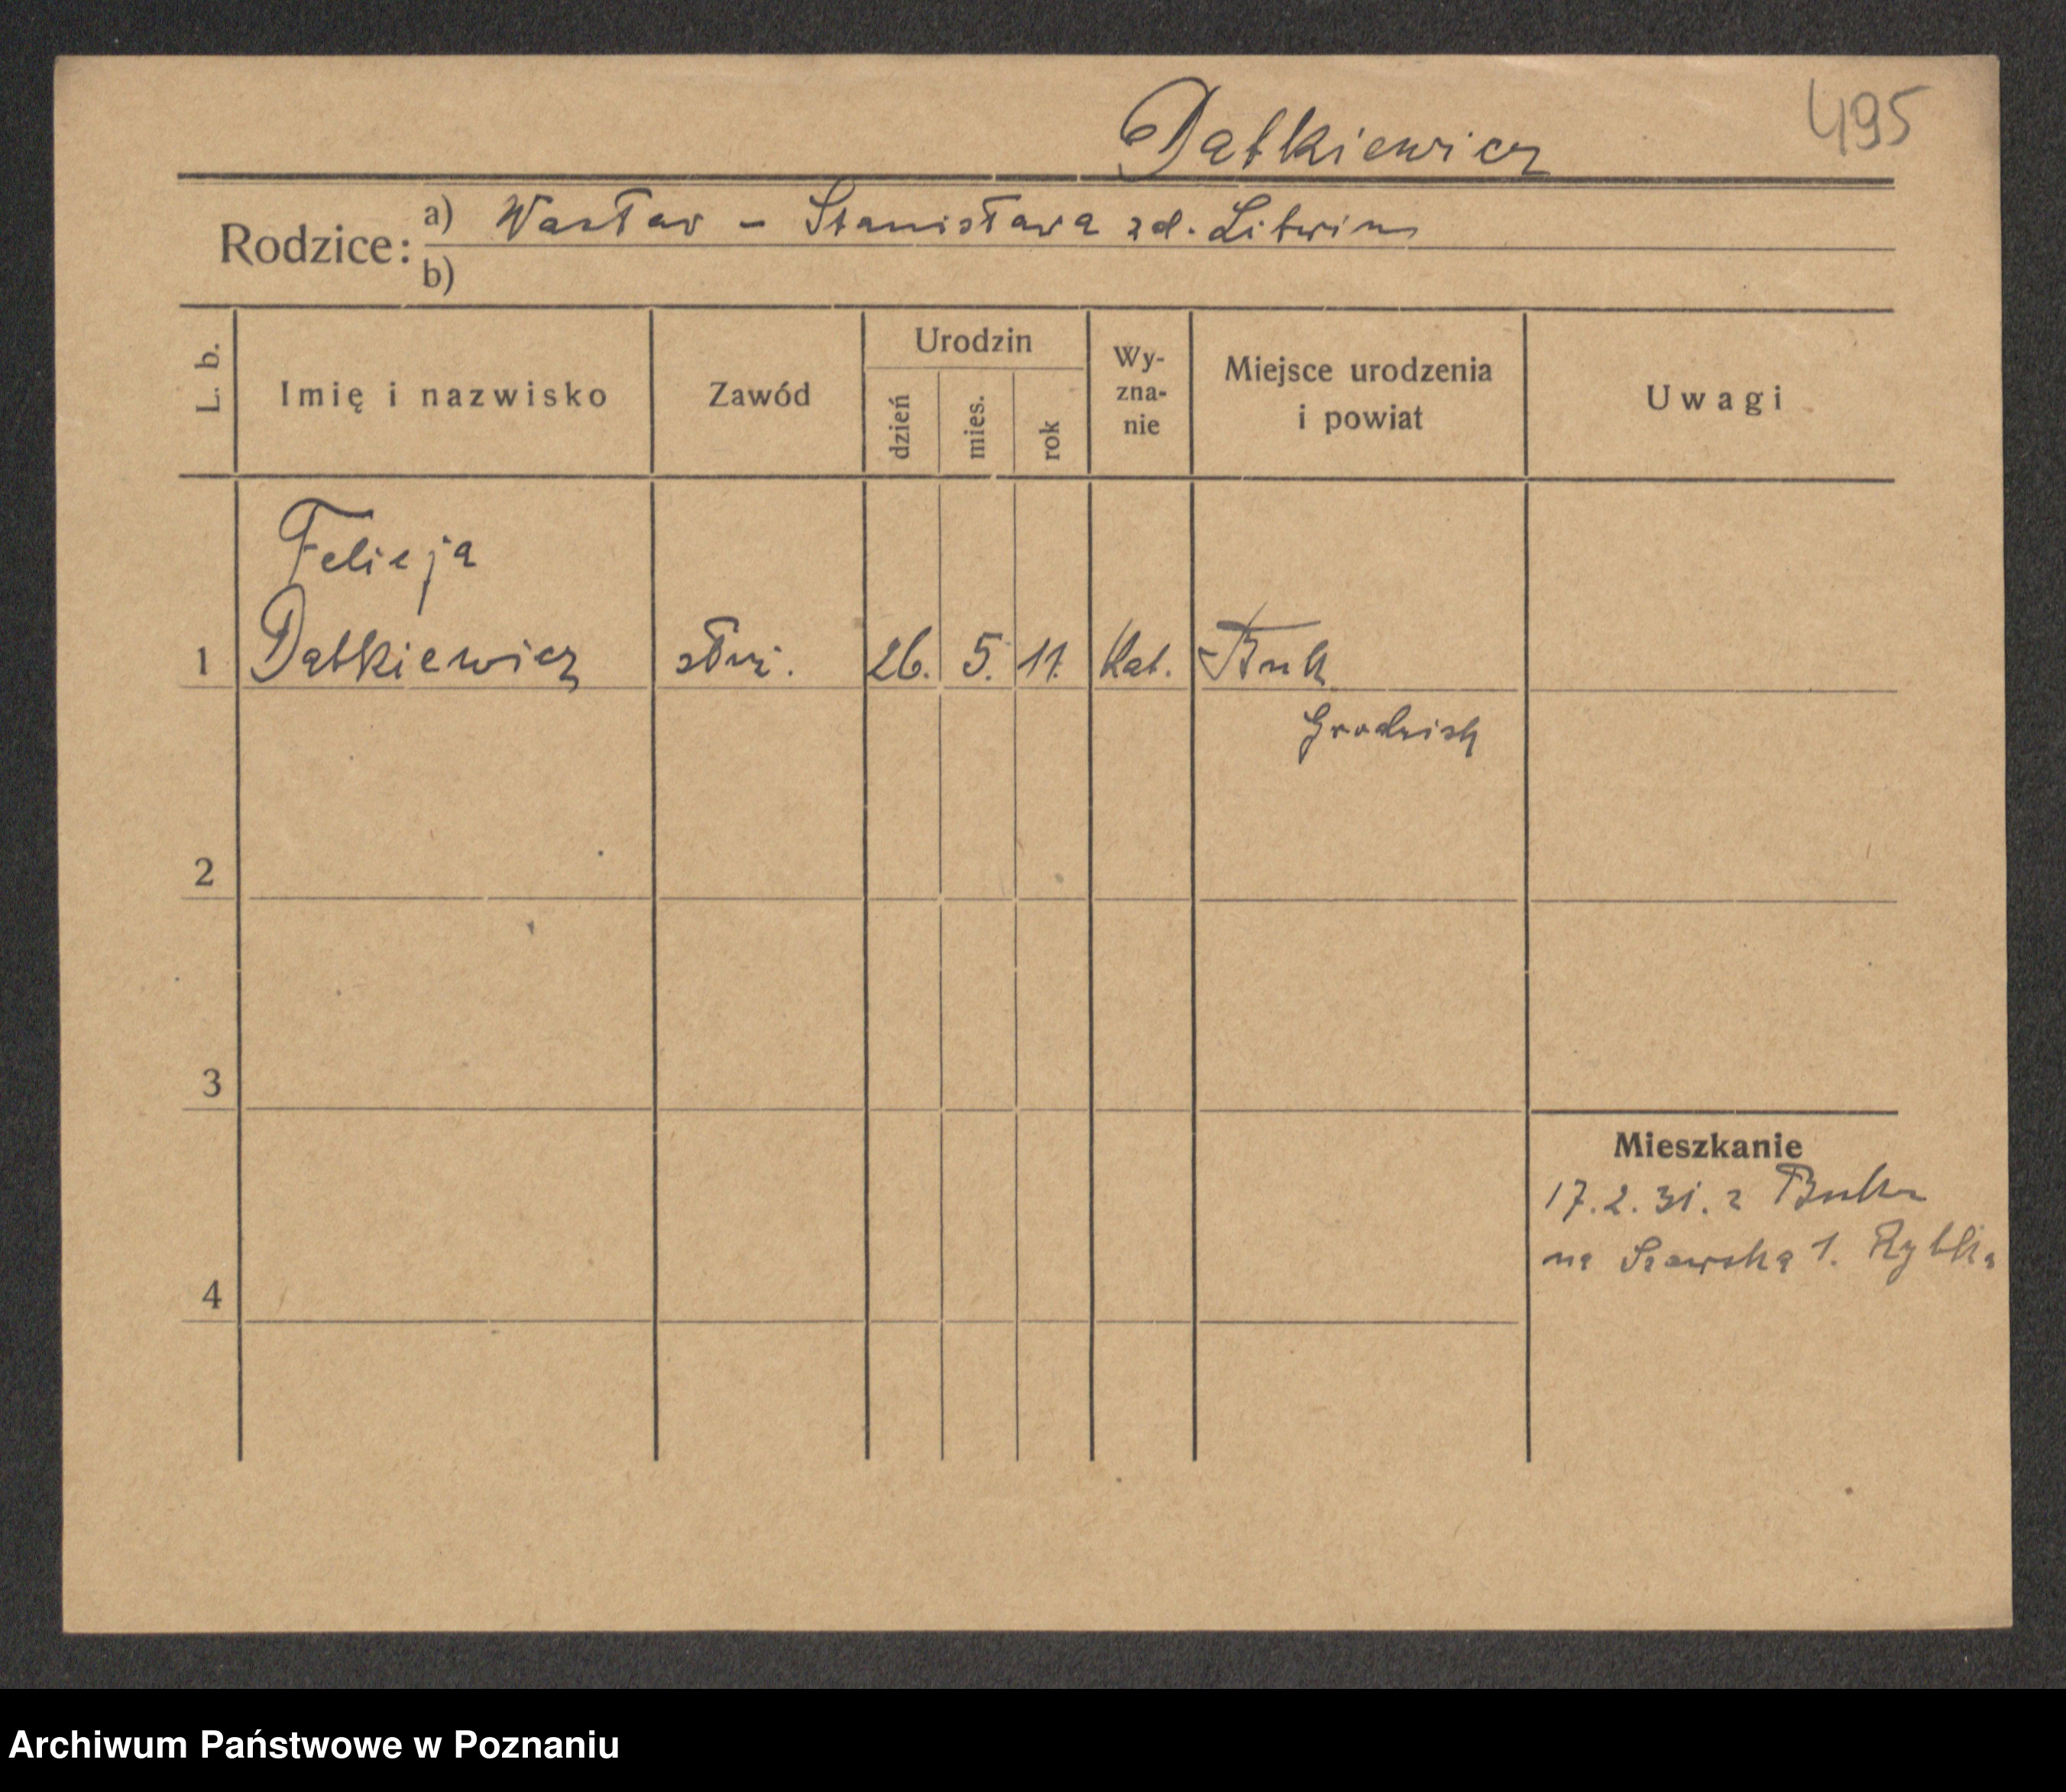 495
Datkiewicz
Rodzice: a) Wacław - Stanisława zd. Litwin
b)
L. b.
Imię i nazwisko
Zawód
Urodzin
dzień
mies.
rok
Wy-
zna-
nie
Miejsce urodzenia
i powiat
Uwagi
Felicja
1 Datkiewicz służ. 26. 5. 11. Kat. Buk
Grodzisk
2
3
4
Mieszkanie
17.2.31. z Buku
na Szewska 1.
Archiwum Państwowe w Poznaniu